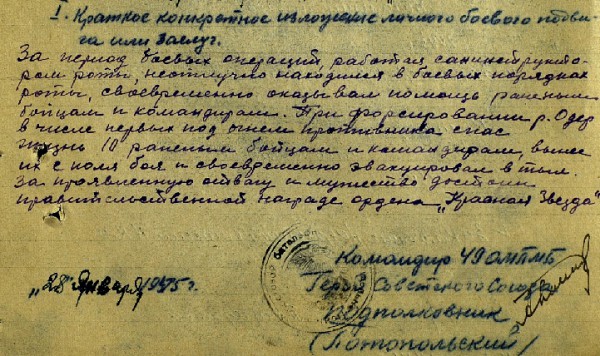 I. Краткое конкретное изложение личного боевого подви-
га или заслуг.
За период боевых операций, работая санинструкто-
ром роты, неотлучно находился в боевых порядках
роты, своевременно оказывал помощь раненым
бойцам и командирам. При форсировании р. Одер
в числе первых под огнем противника спас
жизнь 10 раненым бойцам и командирам, вынес
их с поля боя и своевременно эвакуировал в тыл.
За проявленную отвагу и мужество достоин
правительственной награде ордена „Красная Звезда"
Командир 49 ОМПМБ
„28" Января 1945 г.
Герой Советского Союза
Подполковник
(Потопольский)
батальон